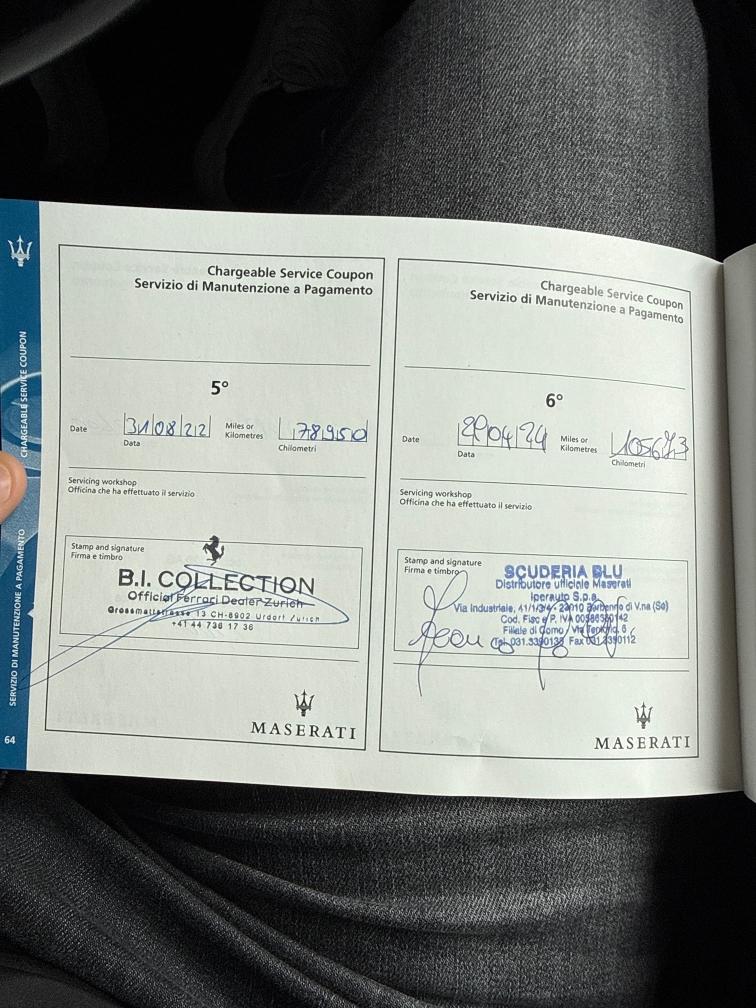 CHARGEABLE SERVICE COUPON
SERVIZIO DI MANUTENZIONE A PAGAMENTO
64
Chargeable Service Coupon
Servizio di Manutenzione a Pagamento
5°
Date
Data
31/08/22
Miles or
Kilometres
Chilometri
78950
Servicing workshop
Officina che ha effettuato il servizio
Stamp and signature
Firma e timbro
B.I. COLLECTION
Official Ferrari Dealer Zurich
13 CH-8902 Urdorf / Zurich
+41 44 736 17 36
MASERATI
Chargeable Service Coupon
Servizio di Manutenzione a Pagamento
6°
Date
Data
04 24
Miles or
Kilometres
Chilometri
105673
Servicing workshop
Officina che ha effettuato il servizio
Stamp and signature
Firma e timbro
SCUDERIA BLU
Distributore ufficiale Maserati
Iperauto S.p.a.
Via Industriale, 41/1/3/4 - 23010 Berbenno di V.na (So)
Cod. Fisc e P. IVA
Filiale di Como / Via
Tel. 031.3390133 Fax 031.3390112
MASERATI